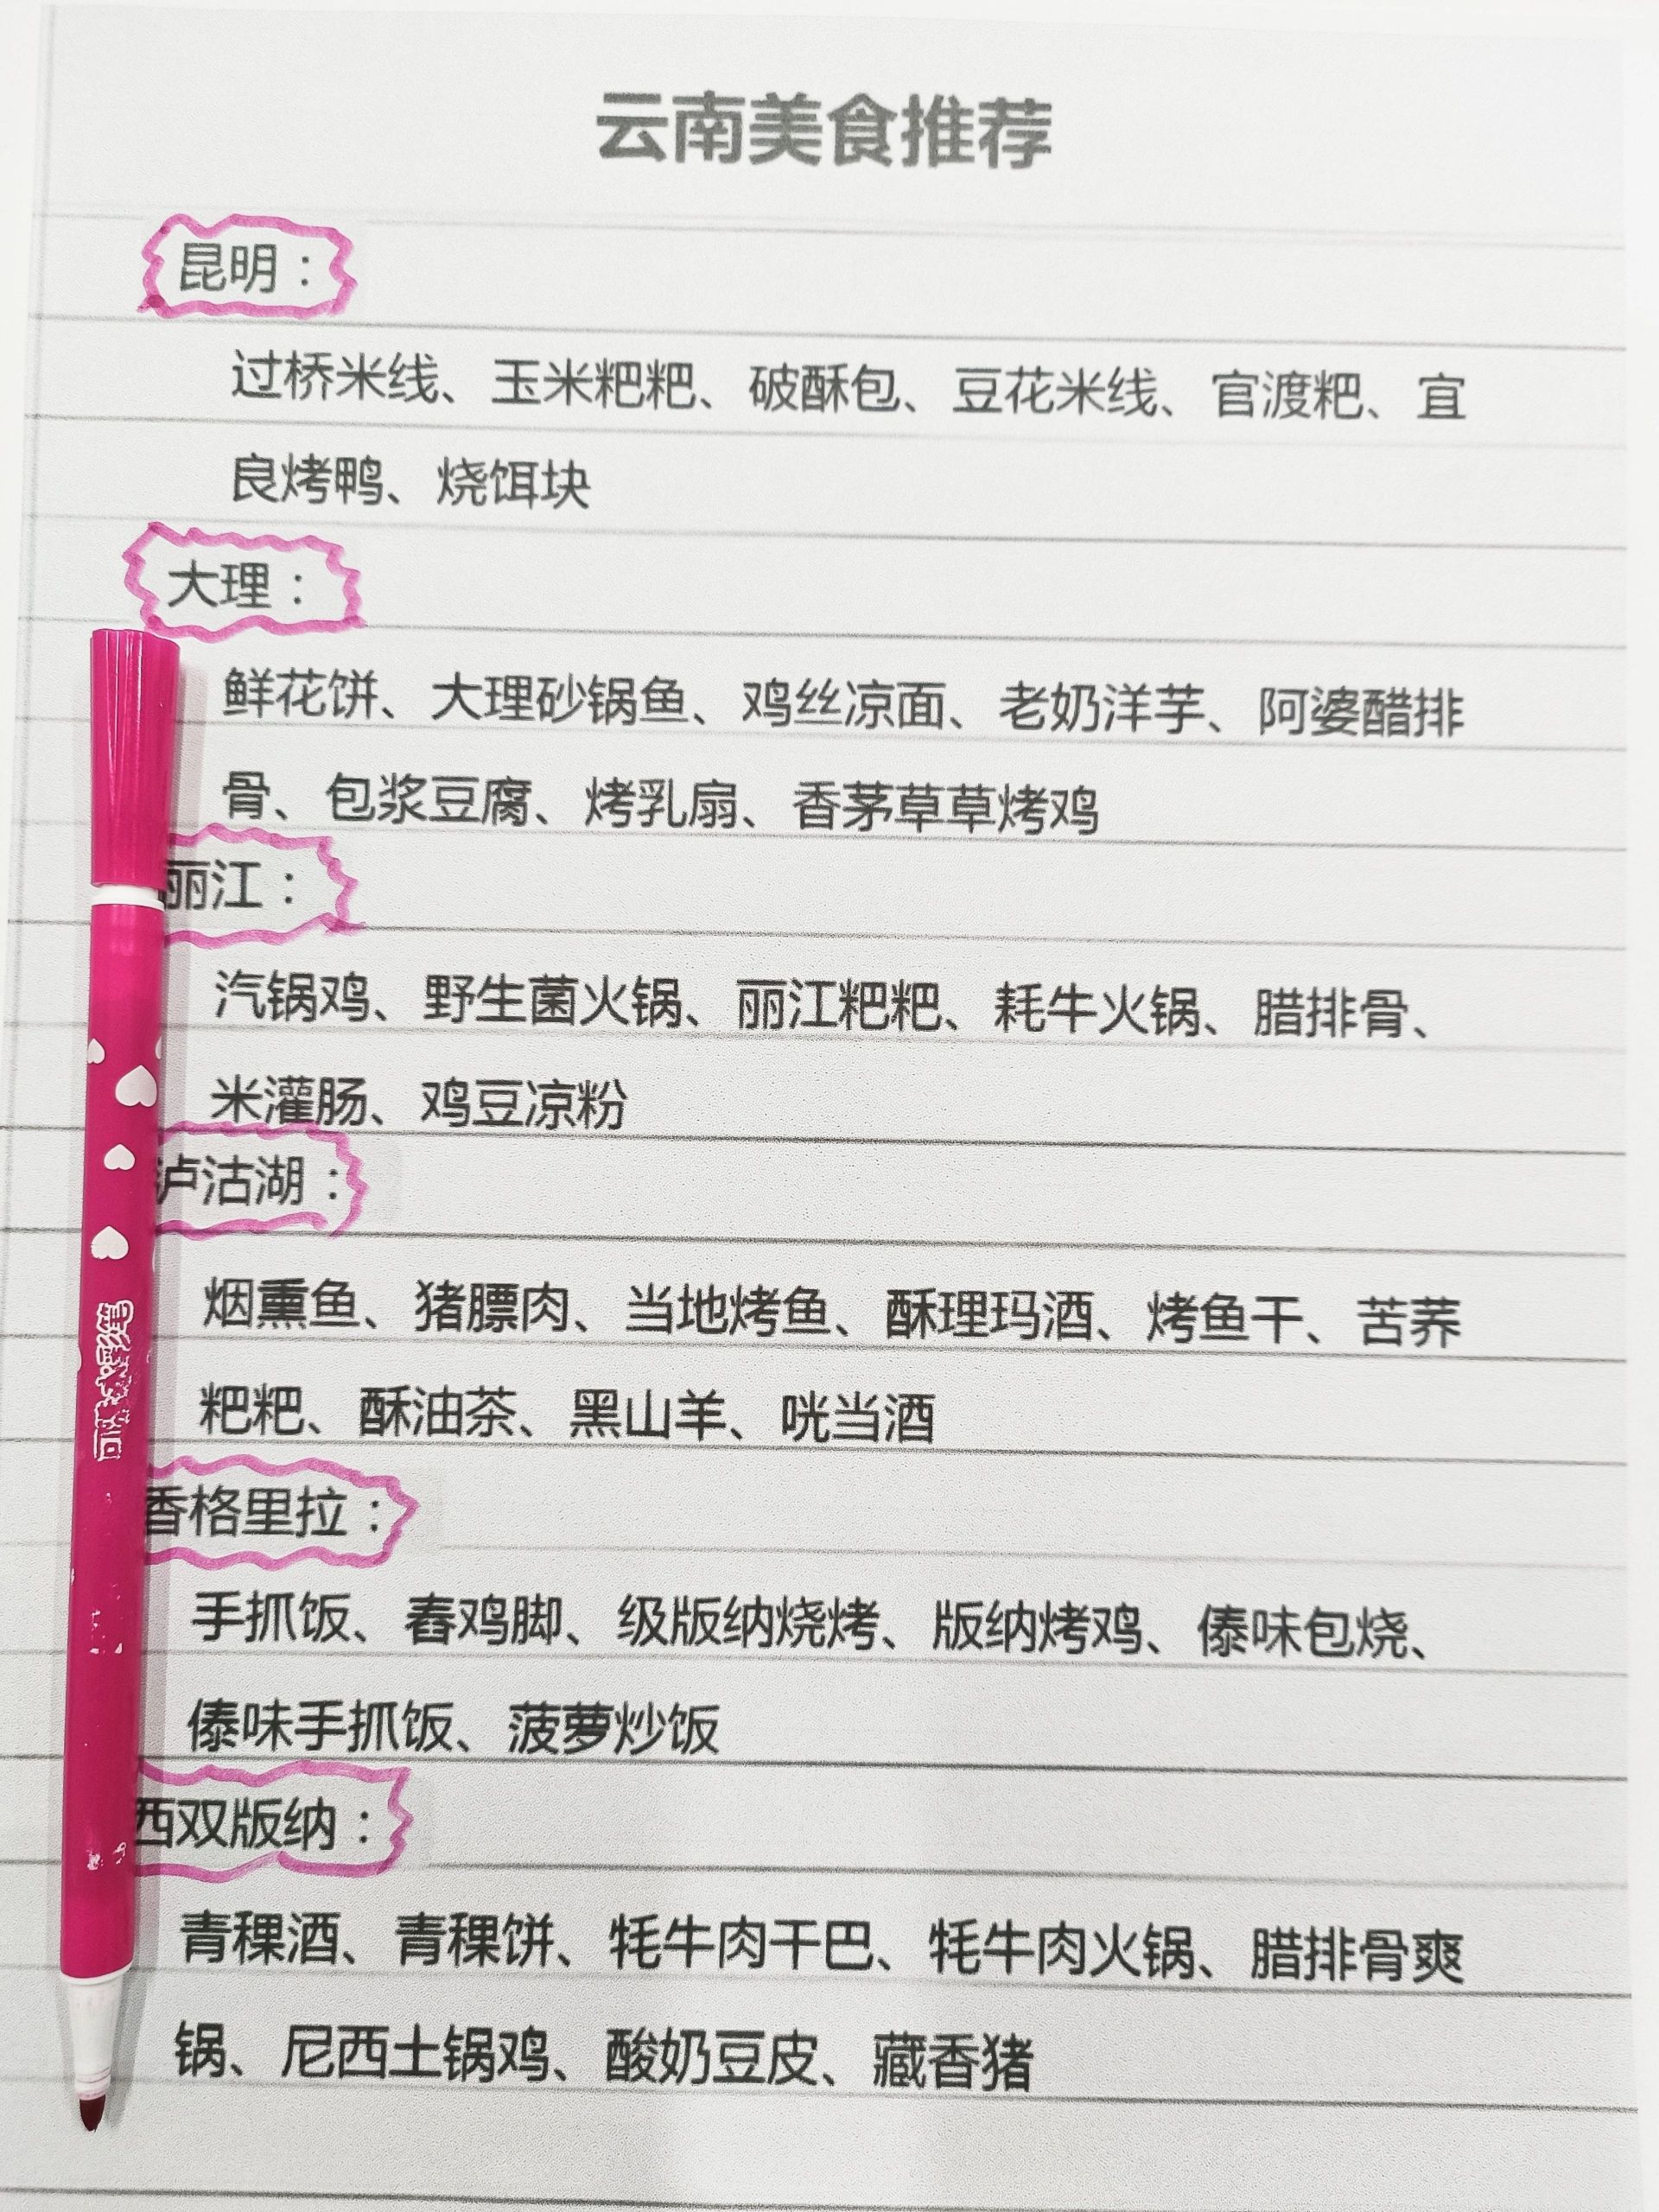 云南美食推荐
昆明：
过桥米线、玉米粑粑、破酥包、豆花米线、官渡粑、宜
良烤鸭、烧饵块
大理：
鲜花饼、大理砂锅鱼、鸡丝凉面、老奶洋芋、阿婆醋排
骨、包浆豆腐、烤乳扇、香茅草草烤鸡
丽江：
汽锅鸡、野生菌火锅、丽江粑粑、耗牛火锅、腊排骨、
米灌肠、鸡豆凉粉
泸沽湖：
烟熏鱼、猪膘肉、当地烤鱼、酥理玛酒、烤鱼干、苦荞
粑粑、酥油茶、黑山羊、咣当酒
香格里拉：
手抓饭、舂鸡脚、级版纳烧烤、版纳烤鸡、傣味包烧、
傣味手抓饭、菠萝炒饭
西双版纳：
青稞酒、青稞饼、牦牛肉干巴、牦牛肉火锅、腊排骨爽
锅、尼西土锅鸡、酸奶豆皮、藏香猪